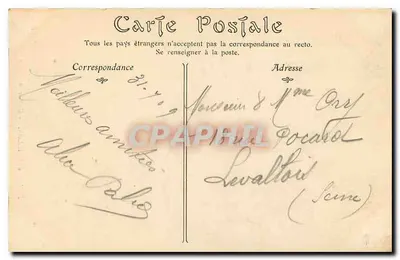 Carte Postale
Tous les pays étrangers n'acceptent pas la correspondance au recto.
Se renseigner à la poste.
Correspondance
Adresse
31-7-09
Meilleures amitiés
Monsieur & Mme
Pocard
Levallois
(Seine)
CPARAMA